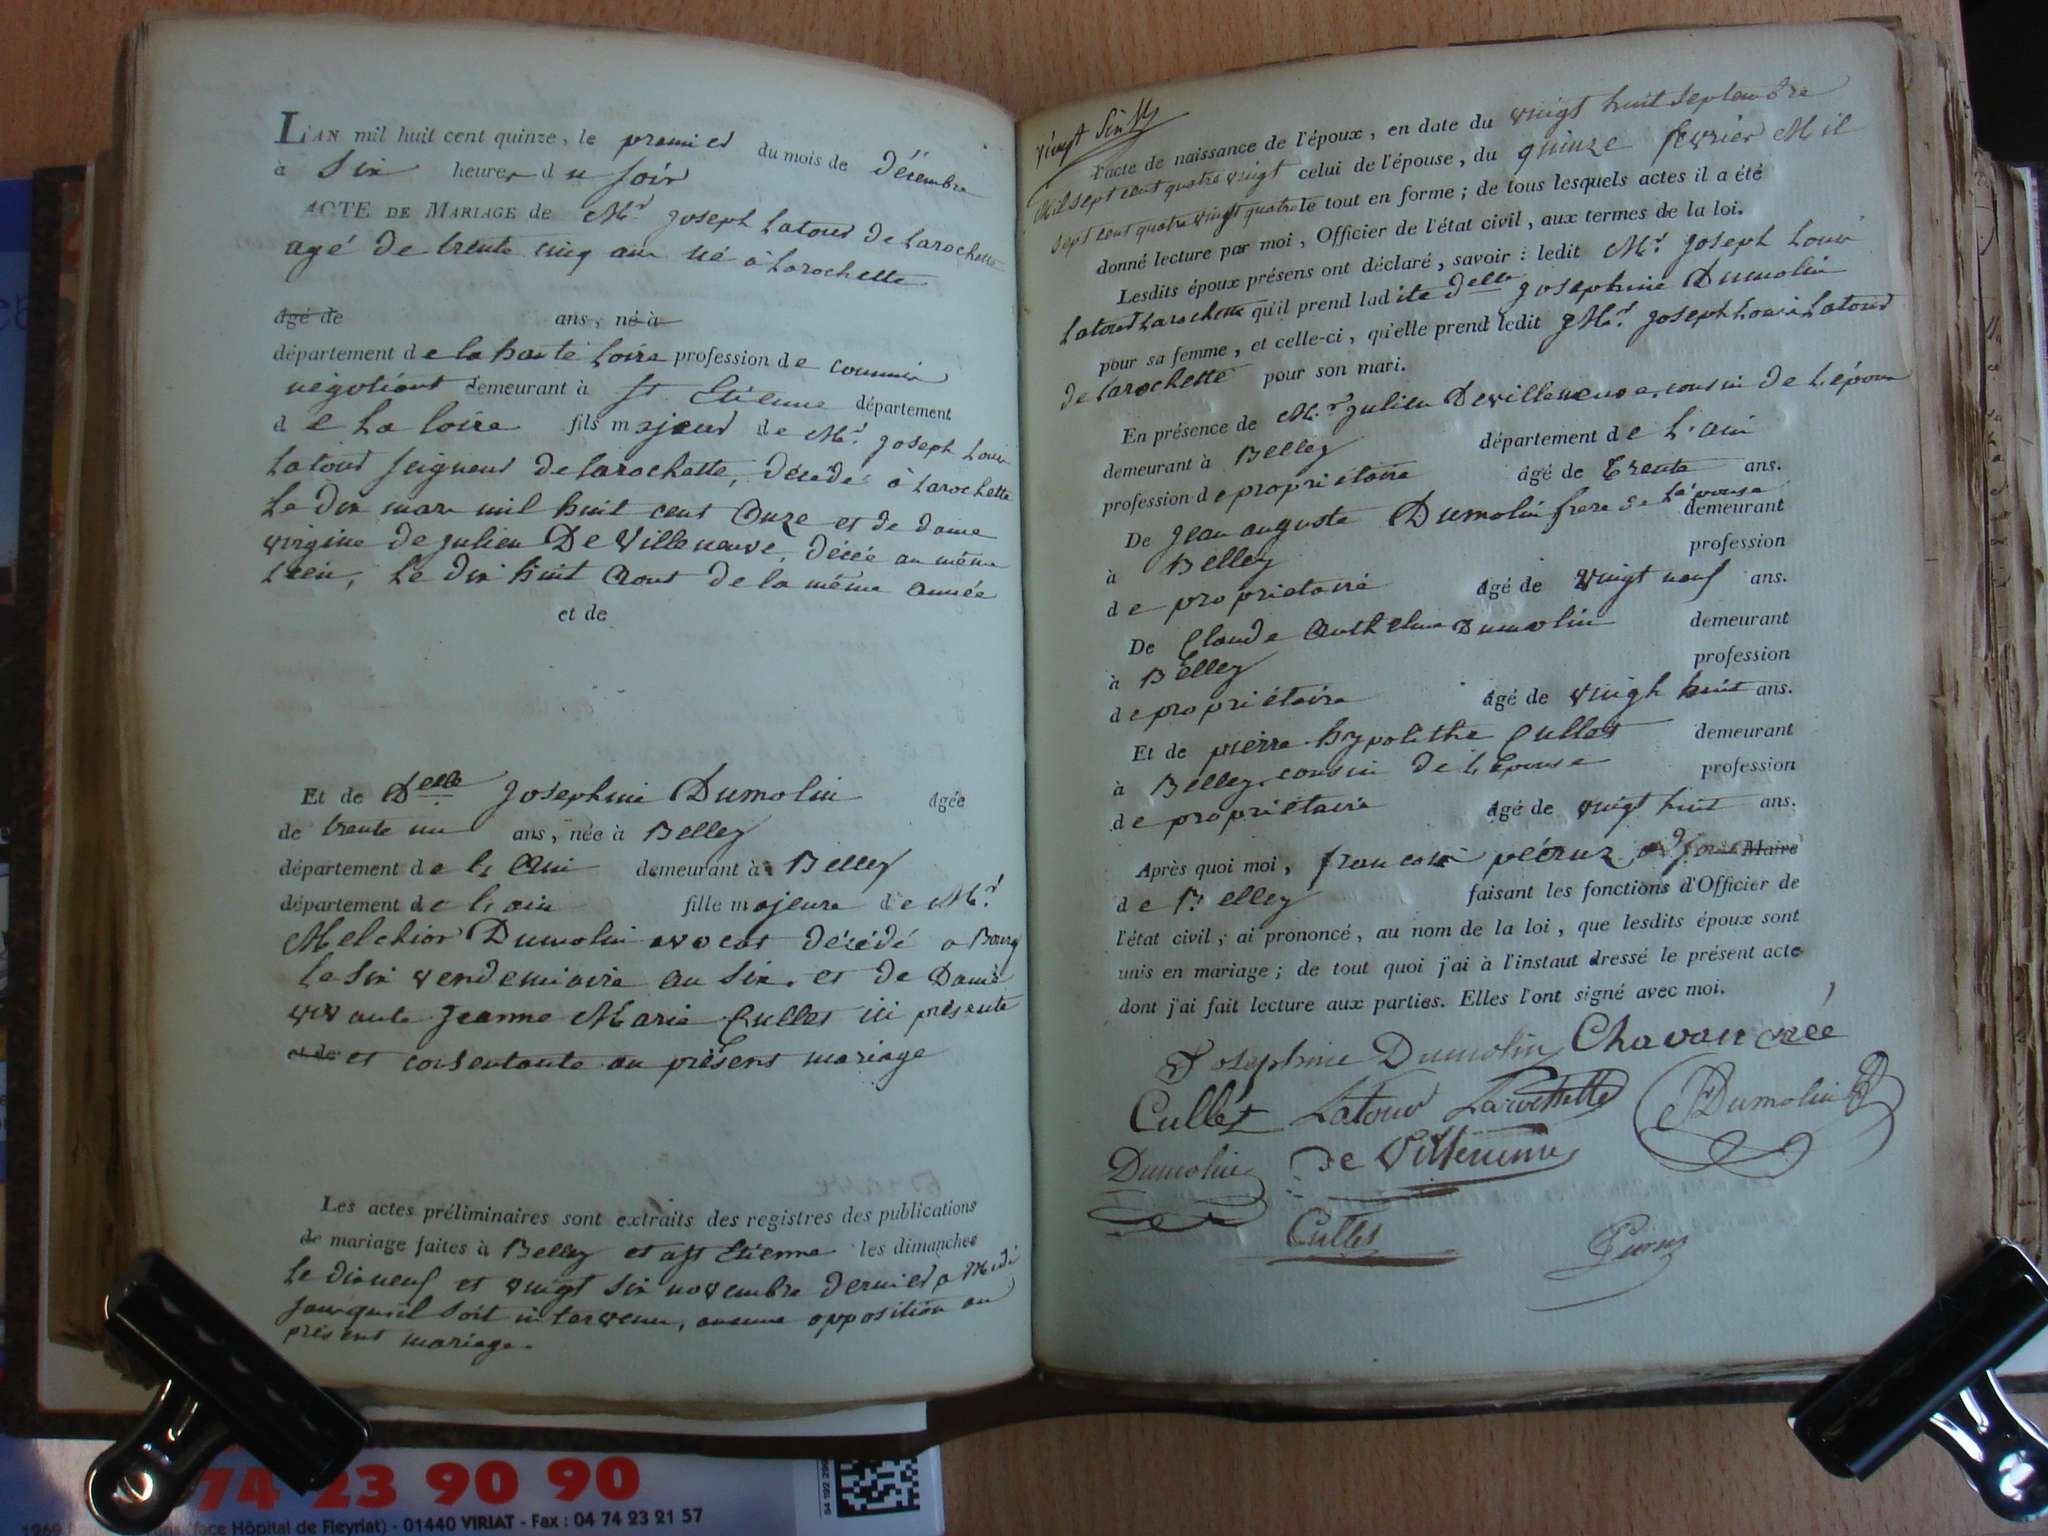 L'AN mil huit cent quinze, le premier du mois de Décembre
à Six heures du soir
ACTE DE MARIAGE de Mr. Joseph Latour de Larochette
agé de trente cinq ans né à Larochette
âgé de ans, né à
département de la haute Loire profession de commis
négotiant demeurant à St Etienne département
de La Loire fils majeur de Mr. Joseph Louis
Latour seigneur de Larochette, décédé à Larochette
Le dix mars mil huit cent Onze et de dame
virgine de julien De Villeneuve, décée au même
Lieu, Le dix huit Aout de la même année
et de
Et de Delle Josephine Dumolin âgée
de trente un ans, née à Belley
département de L'Ain demeurant à Belley
département de L'ain fille majeure de Mr.
Melchior Dumolin avocat décédé a Bourg
Le Six vendemiaire an six, et de Dame
vivante Jeanne Marie Cullet ici présente
et de et consentante au présent mariage
Les actes préliminaires sont extraits des registres des publications
de mariage faites à Belley et a St Etienne les dimanches
Le dix neuf et vingt six novembre dernier a Midi
sans qu'il soit intervenu, aucune opposition au
présent mariage.
vingt Six
l'acte de naissance de l'époux, en date du vingt huit septembre
Mil sept cent quatre vingt celui de l'épouse, du quinze fevrier Mil
sept cent quatre vingt quatre le tout en forme; de tous lesquels actes il a été
donné lecture par moi, Officier de l'état civil, aux termes de la loi.
Lesdits époux présens ont déclaré, savoir: ledit Mr. Joseph Louis
Latour Larochette qu'il prend ladite delle Josephine Dumolin
pour sa femme, et celle-ci, qu'elle prend ledit Mr. Joseph Louis Latour
de Larochette pour son mari.
En présence de Mr. Julien Devilleneuve, cousin de L'époux
demeurant à Belley département de L'ain
profession de propriétaire âgé de trente ans.
De Jean auguste Dumolin frere de Lépouse demeurant
à Belley profession
de proprietaire âgé de vingt neuf ans.
De Claude Anthelme Dumolin demeurant
à Belley profession
de propriétaire âgé de vingt huit ans.
Et de pierre hypolithe Cullet demeurant
à Belley, cousin de L'Epouse profession
de propriétaire âgé de vingt huit ans.
Après quoi moi, francois peéruz adjoint Maire
de Belley faisant les fonctions d'Officier de
l'état civil, ai prononcé, au nom de la loi, que lesdits époux sont
unis en mariage; de tout quoi j'ai à l'instant dressé le présent acte
dont j'ai fait lecture aux parties. Elles l'ont signé avec moi.
Josephine Dumolin Chavan
Cullet Latour Larochette Dumolin
Dumolin de Villeneuve
Cullet
74 23 90 90
(face Hôpital de Fleyriat) - 01440 VIRIAT - Fax : 04 74 23 21 57